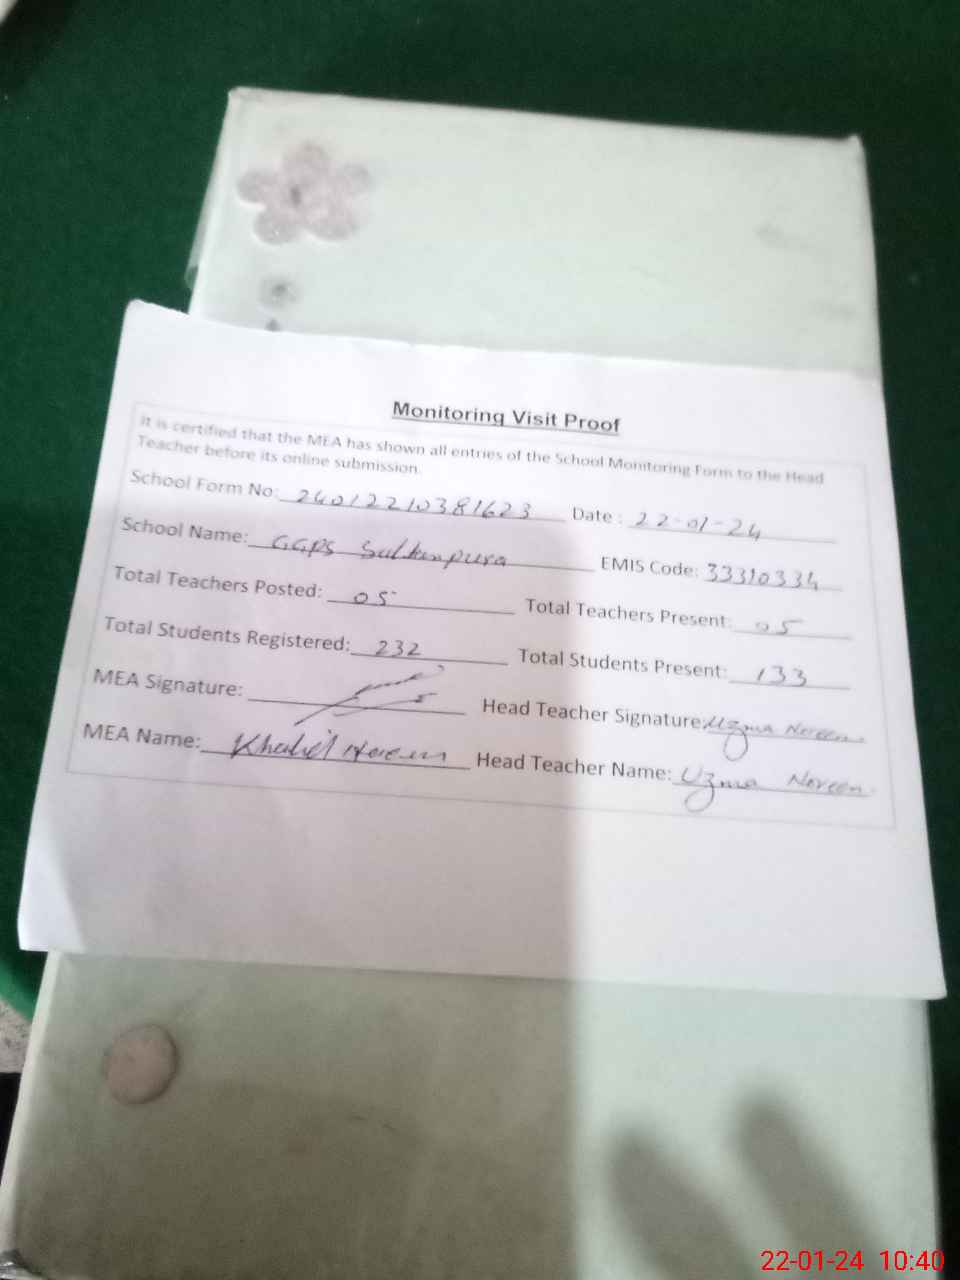 Monitoring Visit Proof
It is certified that the MEA has shown all entries of the School Monitoring Form to the Head
Teacher before its online submission.
School Form No: 24012210381623 Date : 22-01-24
School Name: GGPS Sultanpura EMIS Code: 33310334
Total Teachers Posted: 05 Total Teachers Present: 05
Total Students Registered: 232 Total Students Present: 133
MEA Signature: Head Teacher Signature: Uzma Noreen
MEA Name: Head Teacher Name: Uzma Noreen
22-01-24 10:40